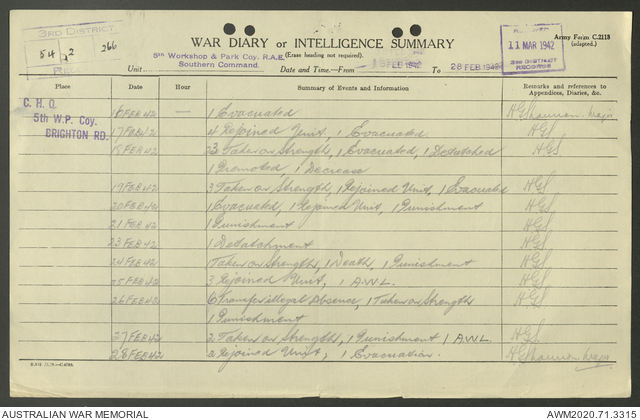 3RD DISTRICT
54 2 266
REC
WAR DIARY or INTELLIGENCE SUMMARY
(Erase heading not required).
Army Form C.2118
(adapted.)
11 MAR 1942
3RD DISTRICT
RECORDS
5th Workshop & Park Coy. R.A.E.
Southern Command.
Unit
Date and Time—From FEB 1942 To 28 FEB 1942
Place Date Hour Summary of Events and Information Remarks and references to Appendices, Diaries, &c.
C. H. Q.
5th W.P. Coy.
BRIGHTON RD.
16 FEB 42 — 1 Evacuated HGShannon Major
17 FEB 42 4 Rejoined Unit, 1 Evacuated HGS
18 FEB 42 23 Taken on Strength, 1 Evacuated, 1 Detatched HGS
1 Promoted, 1 Decrease
19 FEB 42 3 Taken on Strength, 1 Rejoined Unit, 1 Evacuated HGS
20 FEB 42 1 Evacuated, 1 Rejoined Unit, 1 Punishment HGS
21 FEB 42 1 Punishment HGS
23 FEB 42 1 Detatchment HGS
24 FEB 42 Taken on Strength, 1 Death, 1 Punishment HGS
25 FEB 42 3 Rejoined Unit, 1 A.W.L. HGS
26 FEB 42 6 Transfer illegal Absence, 1 Taken on Strength HGS
1 Punishment
27 FEB 42 2 Taken on Strength, 1 Punishment 1 A.W.L. HGS
28 FEB 42 2 Rejoined Unit, 1 Evacuation. HGShannon Major
AUSTRALIAN WAR MEMORIAL AWM2020.71.3315